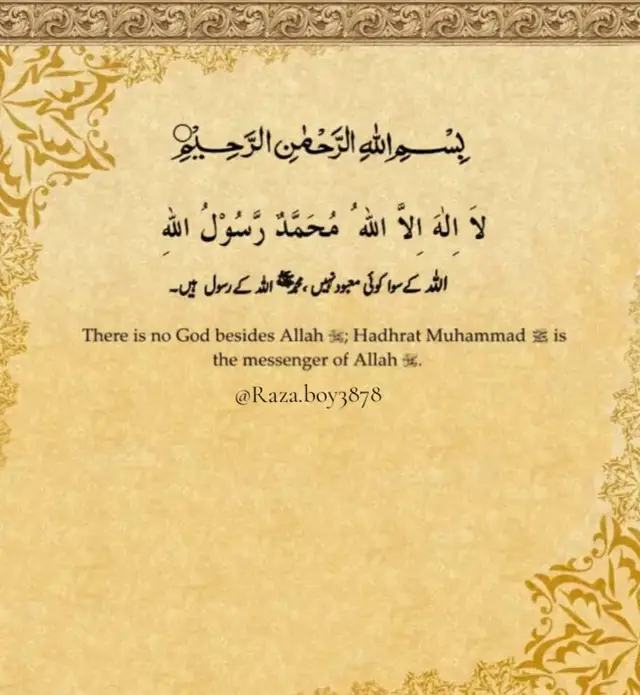 بِسْمِ اللهِ الرَّحْمٰنِ الرَّحِيْمِ
لَا اِلٰهَ اِلَّا اللهُ مُحَمَّدٌ رَّسُوْلُ اللهِ
اللہ کے سوا کوئی معبود نہیں، محمد ﷺ اللہ کے رسول ہیں۔
There is no God besides Allah ; Hadhrat Muhammad ﷺ is
the messenger of Allah .
@Raza.boy3878